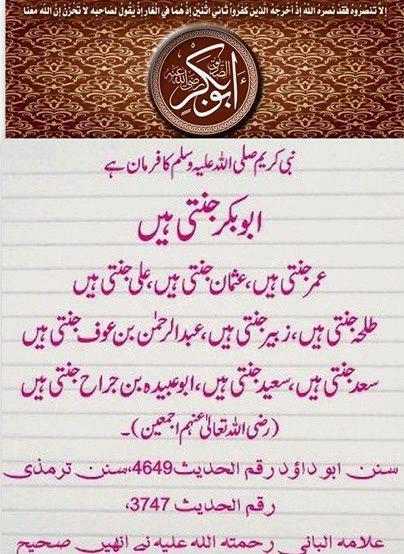 إلا تنصروه فقد نصره الله إذ أخرجه الذين كفروا ثاني اثنين إذ هما في الغار إذ يقول لصاحبه لا تحزن إن الله معنا
أبوبكر الصديق رضي الله عنه
نبی کریم صلی اللہ علیہ وسلم کا فرمان ہے
ابوبکر جنتی ہیں
عمر جنتی ہیں، عثمان جنتی ہیں، علی جنتی ہیں
طلحہ جنتی ہیں، زبیر جنتی ہیں، عبدالرحمٰن بن عوف جنتی ہیں
سعد جنتی ہیں، سعید جنتی ہیں، ابوعبیدہ بن جراح جنتی ہیں
(رضی اللہ تعالیٰ عنہم اجمعین)۔
سنن ابو داؤد رقم الحدیث 4649، سنن ترمذی
رقم الحدیث 3747،
علامہ البانی رحمتہ اللہ علیہ نے انھیں صحیح